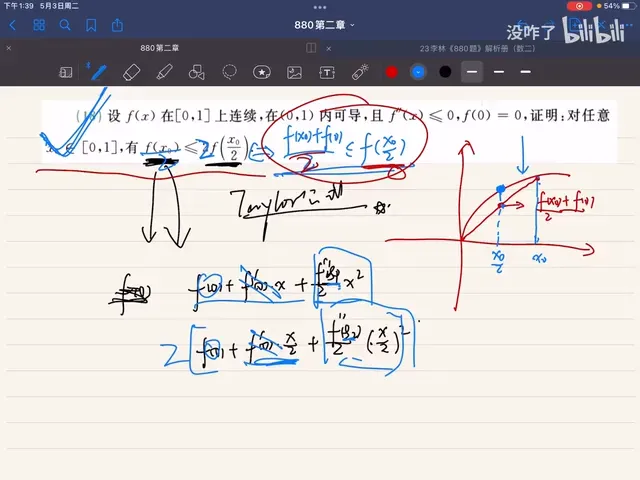 下午 1:39 5月3日周二
54%
880 第二章
没咋了 bilibili
880 第二章
23李林《880题》解析册(数二)
(18) 设 f(x) 在[0,1]上连续,在(0,1)内可导,且 f″(x) ≤ 0, f(0) = 0, 证明:对任意
∈ [0,1], 有 f(x₀) ≤ 2f(x₀/2) ⇔ (f(x₀)+f(0))/2 ≤ f(x₀/2)
Taylor
(f(x₀)+f(0))/2
x₀/2 x₀
f(0) + f'(0)x + f''(ξ₁)/2 x²
2[f(0) + f'(0) x/2 + f''(ξ₂)/2 (x/2)²]